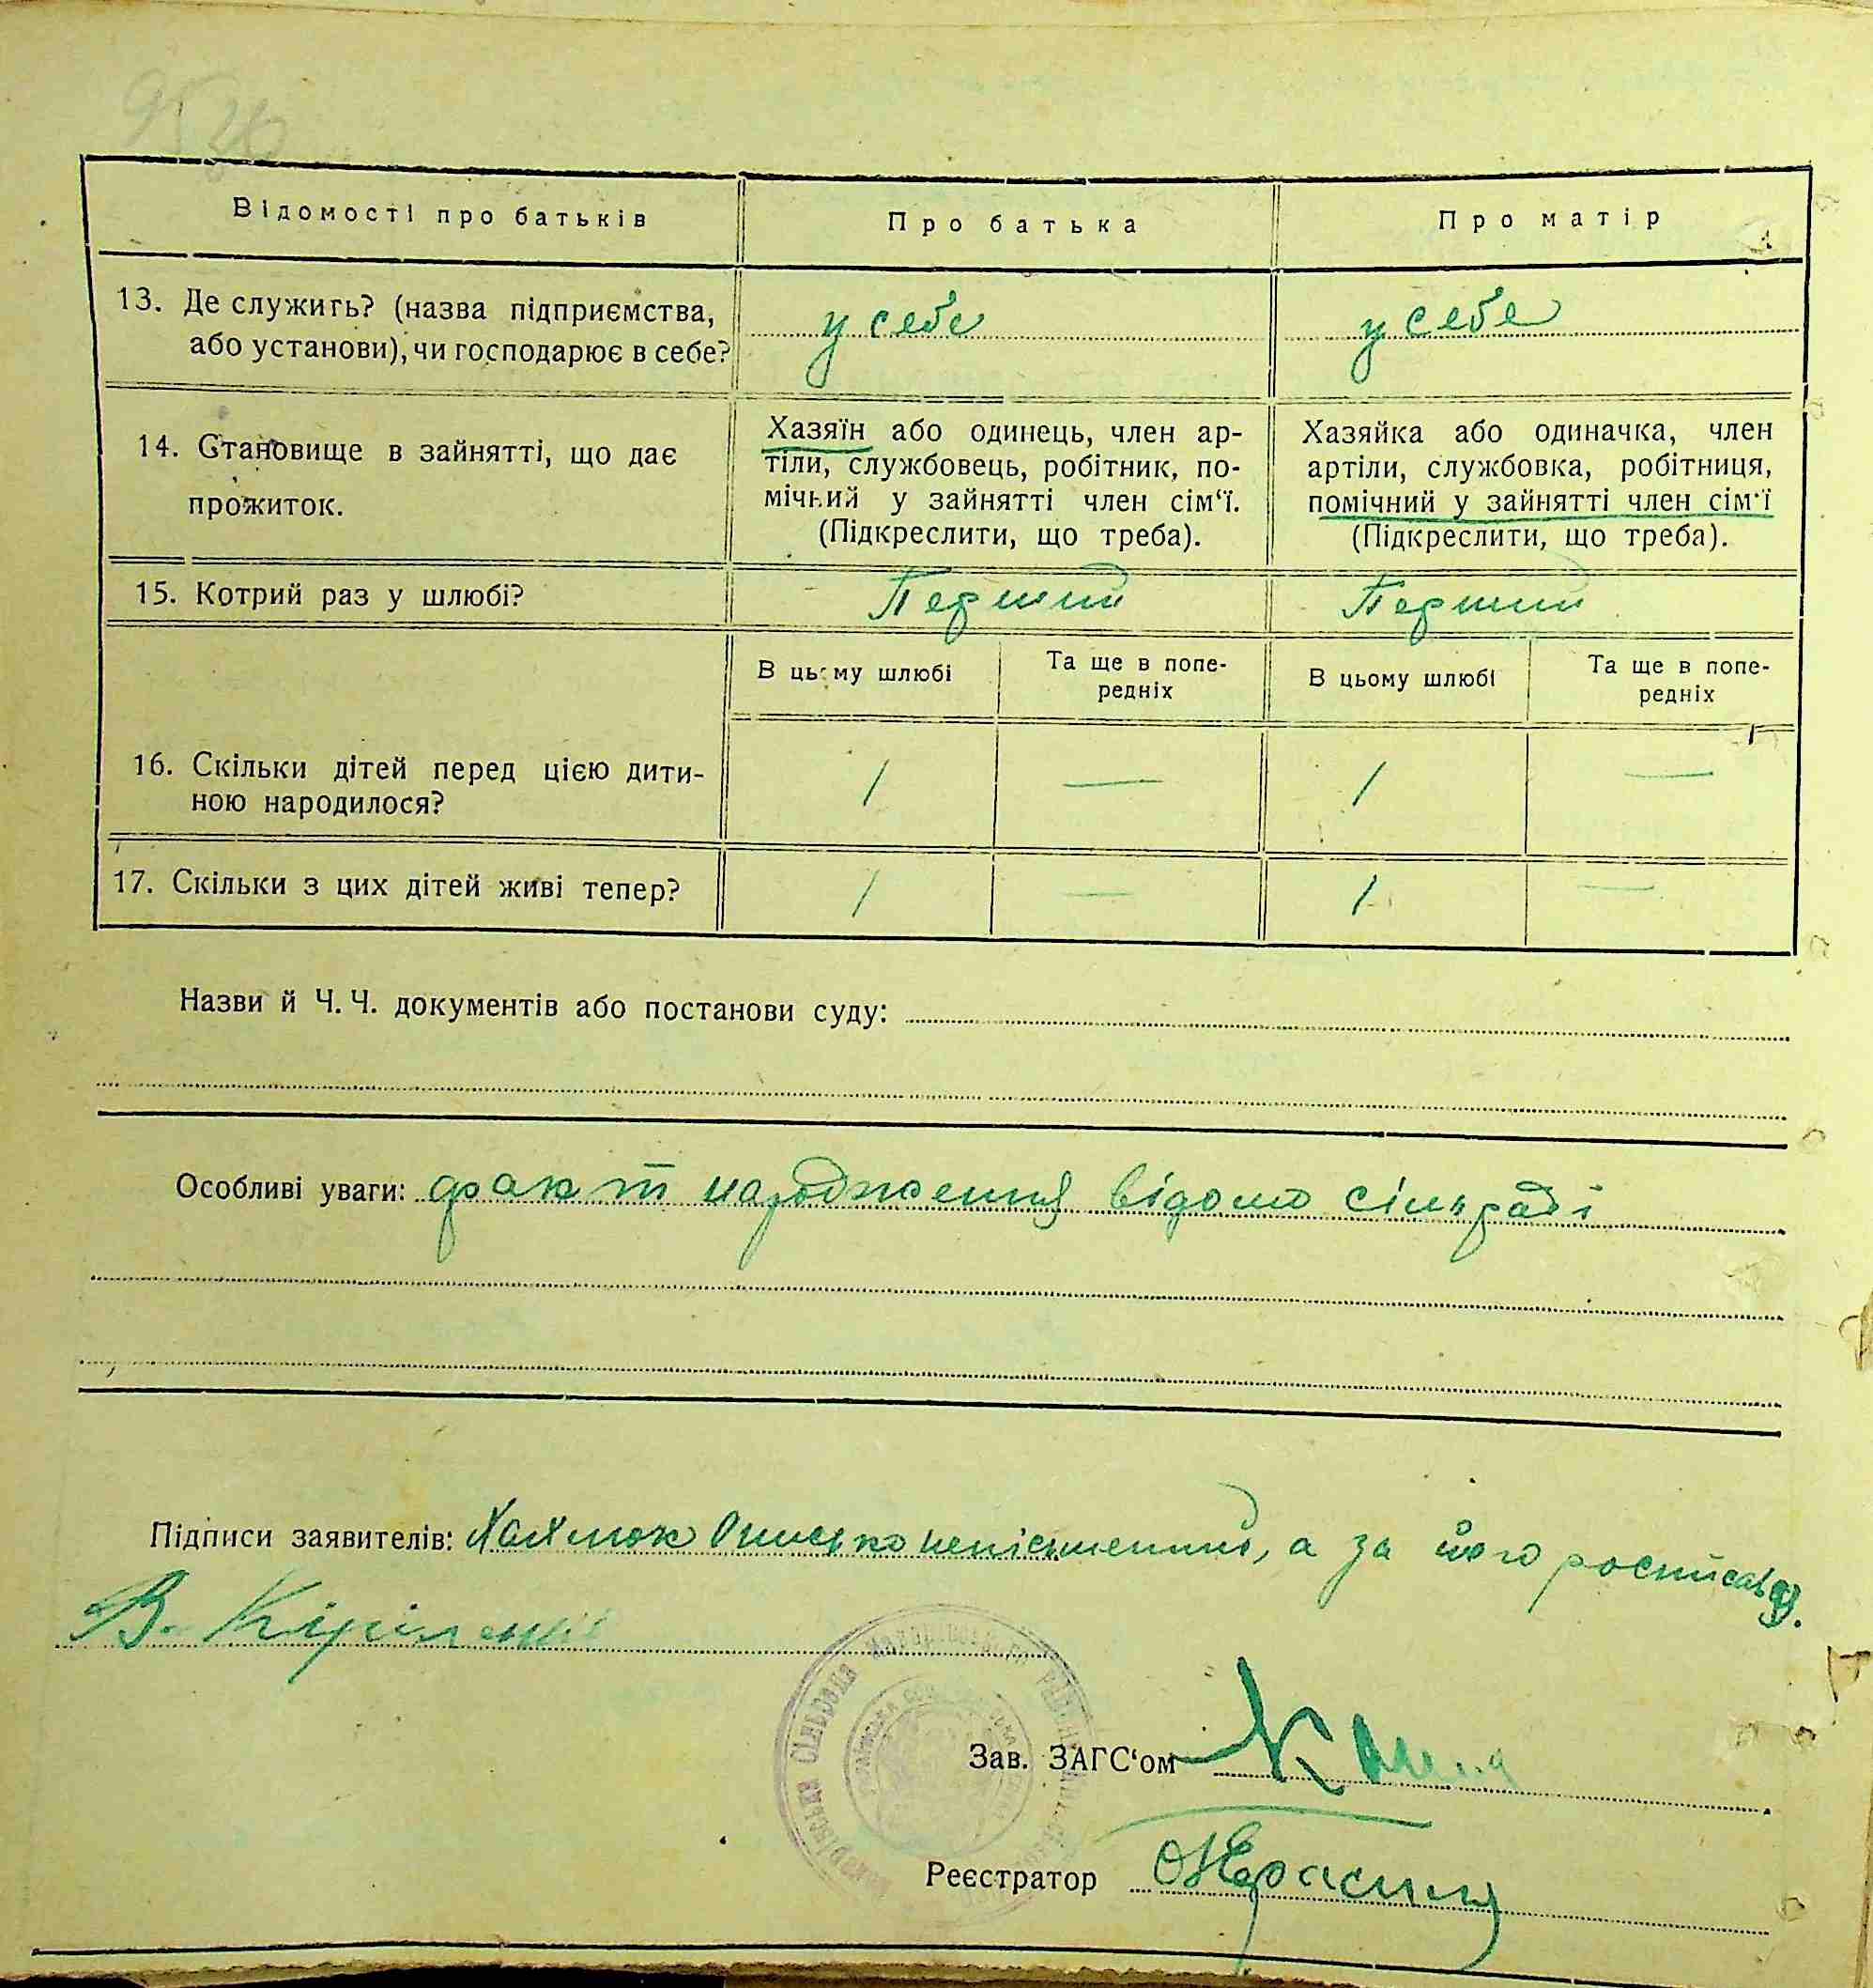 Відомості про батьків
Про батька
Про матір
13. Де служить? (назва підприємства,
або установи), чи господарює в себе?
у себе
у себе
14. Становище в зайнятті, що дає
прожиток.
Хазяїн або одинець, член ар-
тіли, службовець, робітник, по-
мічний у зайнятті член сім‘ї.
(Підкреслити, що треба).
Хазяйка або одиначка, член
артіли, службовка, робітниця,
помічний у зайнятті член сім‘ї
(Підкреслити, що треба).
15. Котрий раз у шлюбі?
Перший
Перший
В цьому шлюбі
Та ще в попе-
редніх
В цьому шлюбі
Та ще в попе-
редніх
16. Скільки дітей перед цією дити-
ною народилося?
1
—
1
—
17. Скільки з цих дітей живі тепер?
1
—
1
—
Назви й Ч. Ч. документів або постанови суду:
Особливі уваги: факт народження відомо сільраді
Підписи заявителів: неписьменний, а за його росписавсь
В.
сільрада
Зав. ЗАГС‘ом
Реєстратор